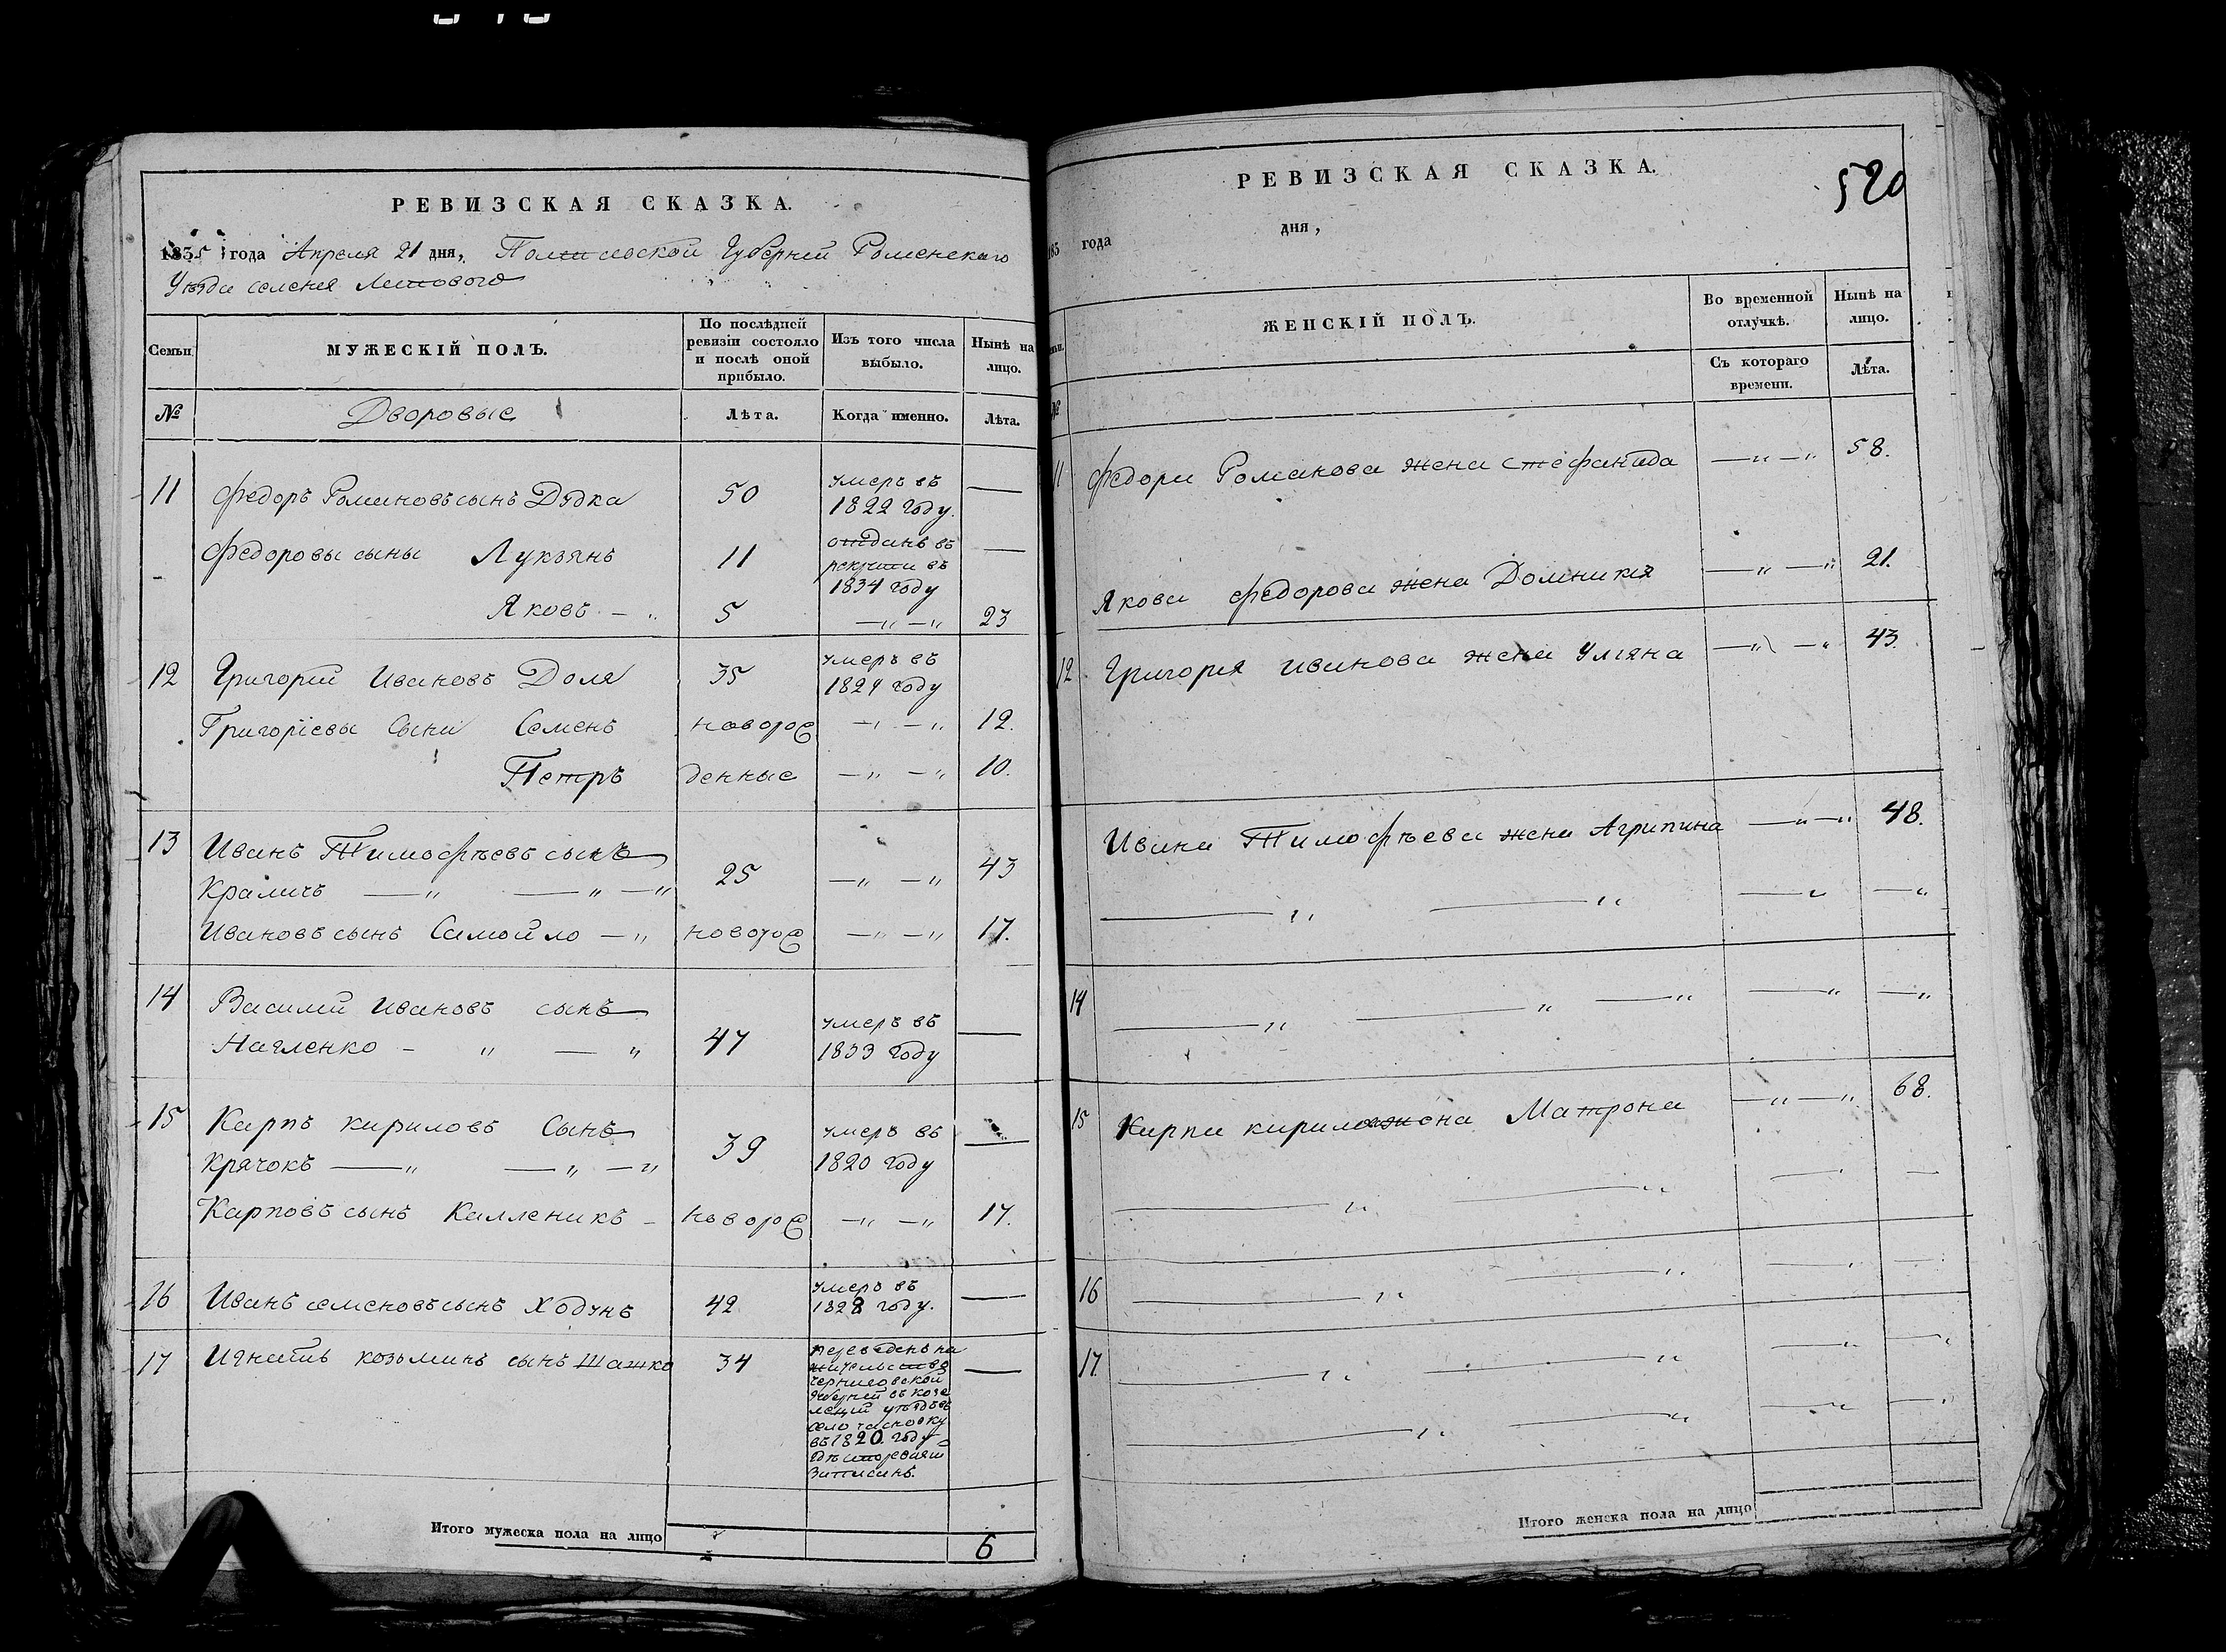 РЕВИЗСКАЯ СКАЗКА.
1835 года Апреля 21 дня, Полтавской Губерній Роменскаго
Уѣзда селенія Липового
Семьи.
МУЖЕСКІЙ ПОЛЪ.
По послѣдней ревизіи состояло и послѣ оной прибыло.
Изъ того числа выбыло.
Нынѣ на лицо.
№ Дворовые Лѣта. Когда именно. Лѣта.
11 Федоръ Романовъ сынъ Дядка 50 умеръ въ 1822 году. —
Федоровы сыны Лукьянъ 11 отданъ въ рекруты въ 1834 году —
Яковъ — „ 5 — „ — „ 23
12 Григорій Ивановъ Доля 35 умеръ въ 1824 году
Григоріевы сыни Семенъ новорож — „ — „ 12.
Петръ денные — „ — „ 10.
13 Иванъ Тимофѣевъ сынъ
Краличъ — „ — „ — „ 25 — „ — „ 43
Ивановъ сынъ Самойло — „ новорож — „ — „ 17.
14 Василий Ивановъ сынъ
— „ — „ 47 умеръ въ 1833 году —
15 Карпъ Кириловъ Сынъ
Крячокъ — „ — „ — „ 39 умеръ въ 1820 году —
Карповъ сынъ Калленикъ — новорож — „ — „ 17.
16 Иванъ Семеновъ сынъ Ходунъ 42 умеръ въ 1828 году. —
17 Игнатъ Козьминъ сынъ Шашко 34 переведенъ на
жительство
Черниговской
Губерній въ Козе
лецкий уѣздъ въ
село
въ 1820. году
гдѣ
записанъ.
—
Итого мужеска пола на лицо 6
РЕВИЗСКАЯ СКАЗКА.
520
183 года дня,
ЖЕНСКІЙ ПОЛЪ.
Во временной отлучкѣ.
Нынѣ на лицо.
№
Съ котораго времени.
Лѣта.
11 Федора Романова жена Стефанида — „ — „ 58.
Якова Федорова жена Домникія — „ — „ 21.
12 Григорія Иванова жена Уліяна — „ — „ 43.
Ивана Тимофѣева жена Агрипина — „ — „ 48.
— „ — „ — „ — „
14 — „ — „ — „ — „ — „
15 Карпа Кирилова жена Матрона — „ — „ 68.
— „ — „ — „ —
16 — „ — „ — „ —
17. — „ — „ — „ — „
— „ — „ — „ — „
Итого женска пола на лицо